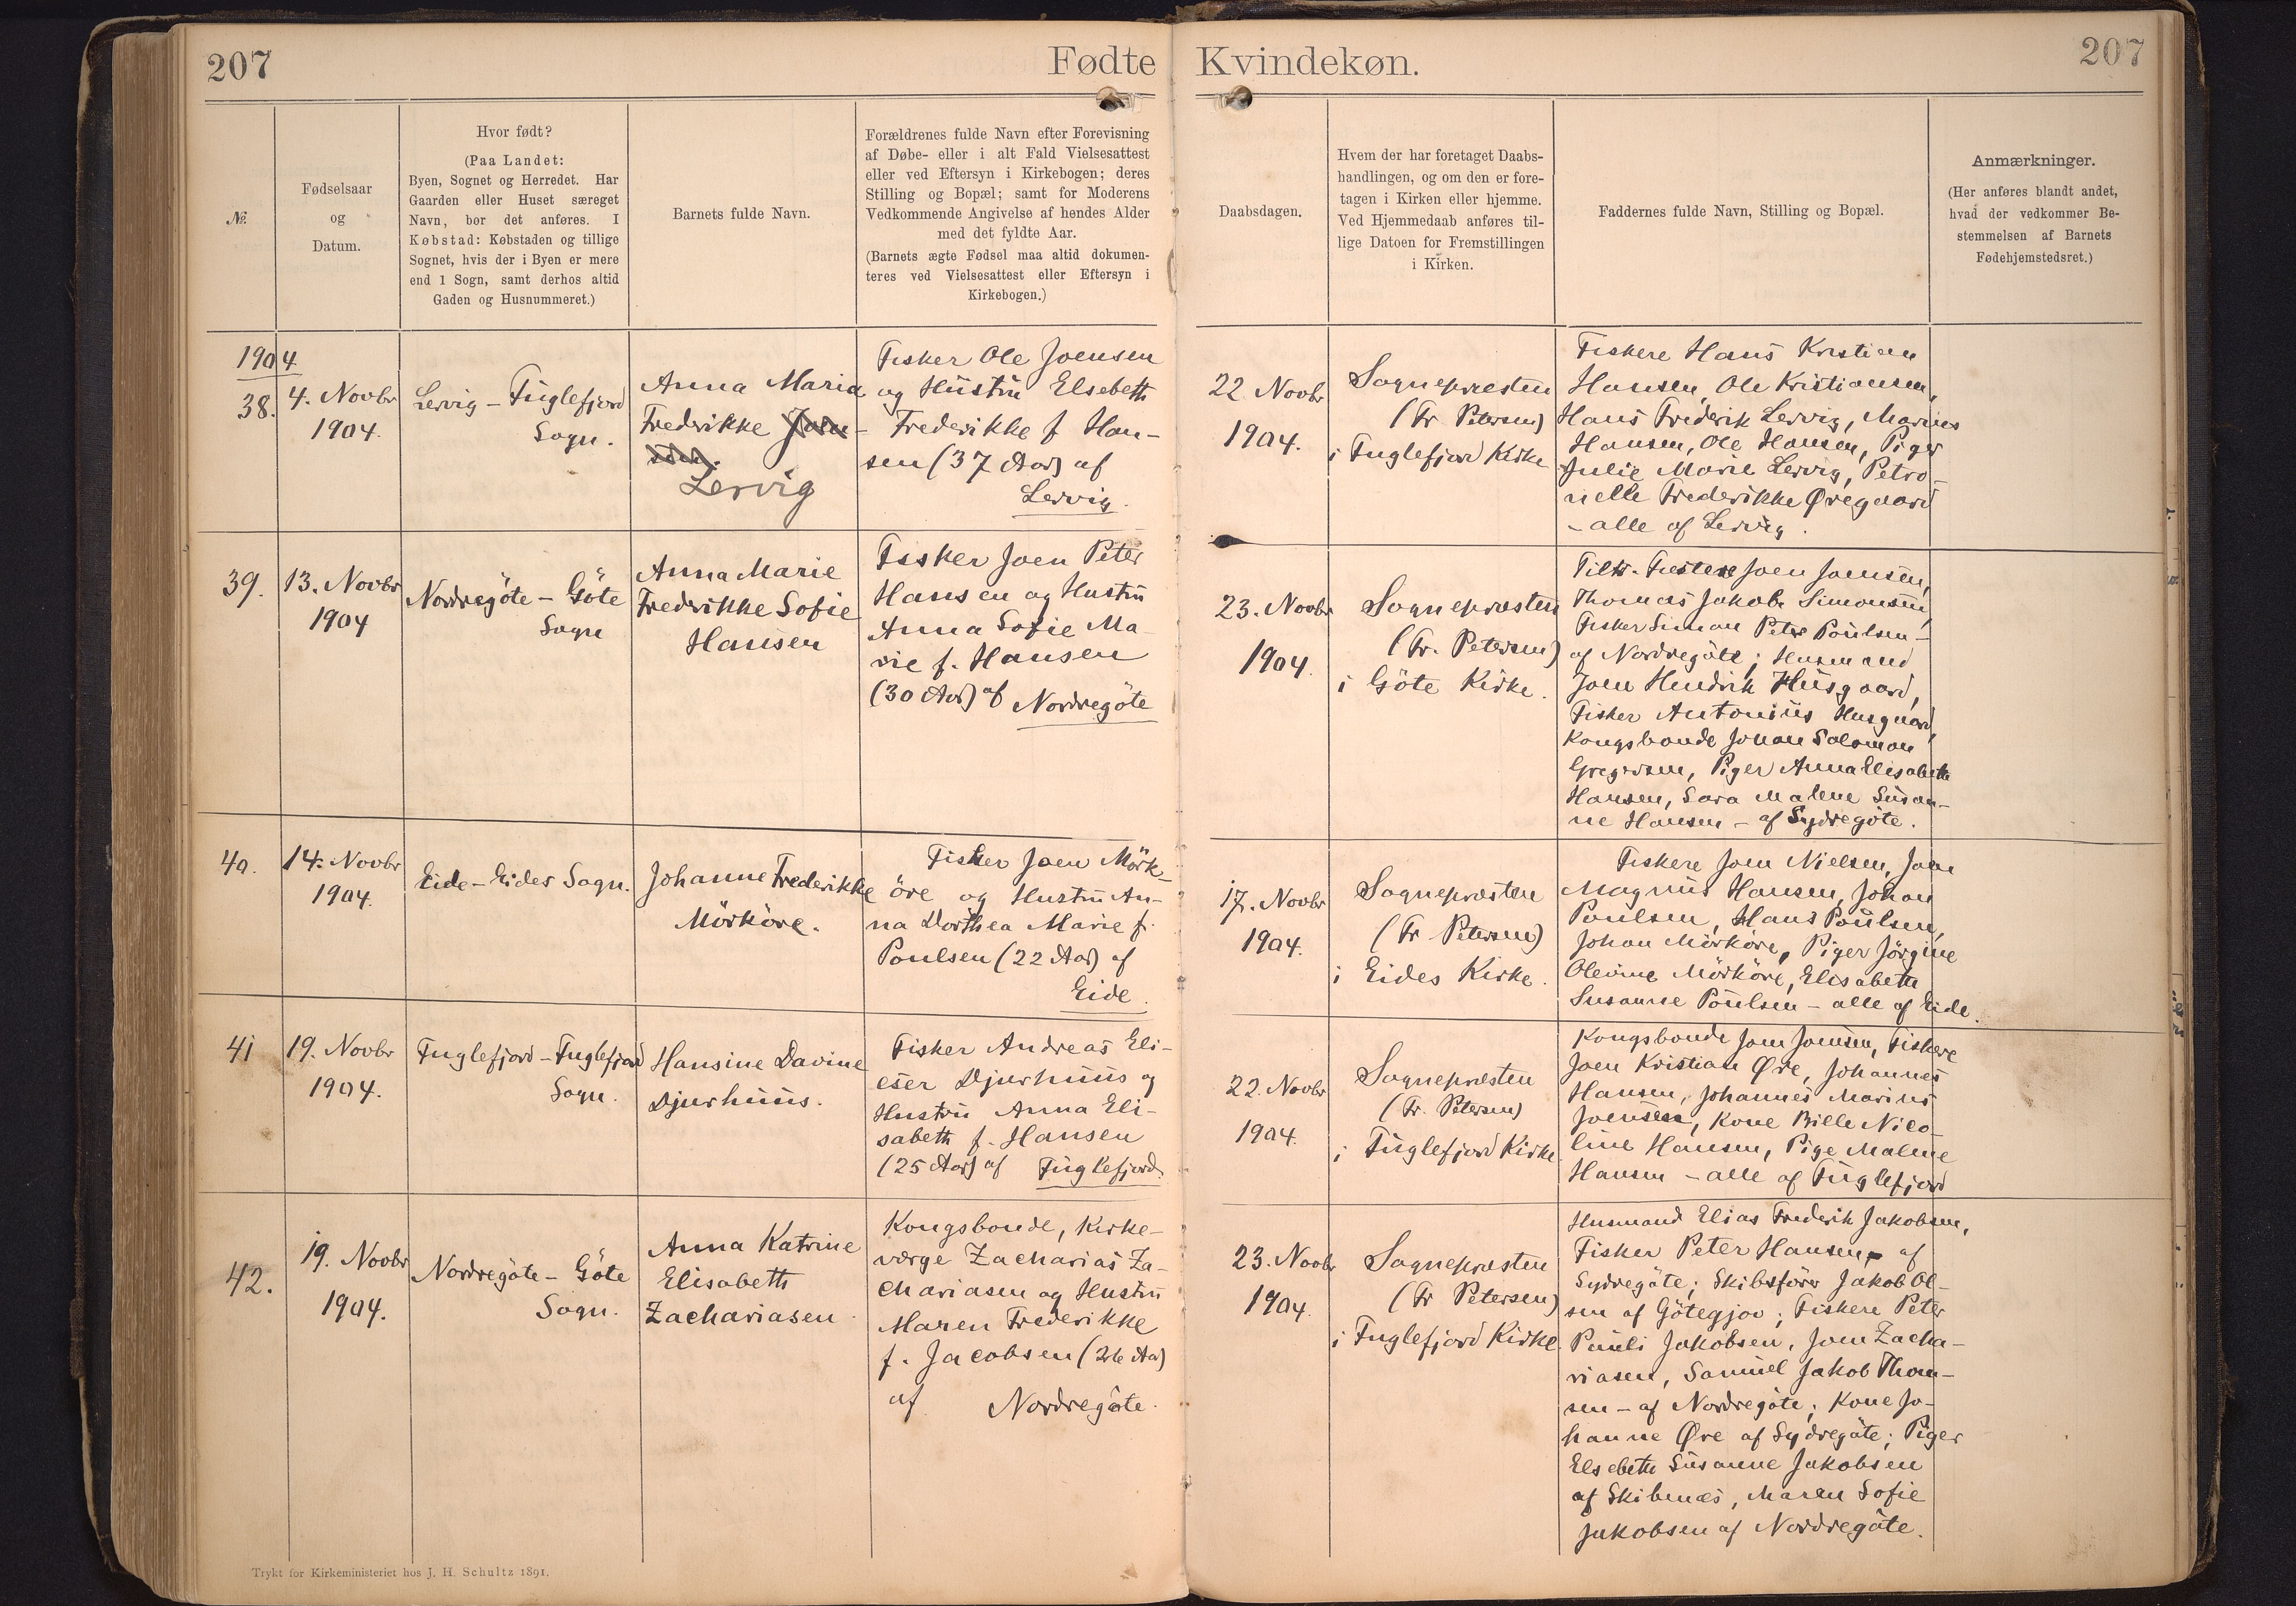 207
Fødte
Kvindekøn.
207
№
Fødselsaar
og
Datum.
Hvor født?
(Paa Landet:
Byen, Sognet og Herredet. Har
Gaarden eller Huset særeget
Navn, bør det anføres. I
Købstad: Købstaden og tillige
Sognet, hvis der i Byen er mere
end 1 Sogn, samt derhos altid
Gaden og Husnummeret.)
Barnets fulde Navn.
Forældrenes fulde Navn efter Forevisning
af Døbe- eller i alt Fald Vielsesattest
eller ved Eftersyn i Kirkebogen; deres
Stilling og Bopæl; samt for Moderens
Vedkommende Angivelse af hendes Alder
med det fyldte Aar.
(Barnets ægte Fødsel maa altid dokumen-
teres ved Vielsesattest eller Eftersyn i
Kirkebogen.)
Daabsdagen.
Hvem der har foretaget Daabs-
handlingen, og om den er fore-
tagen i Kirken eller hjemme.
Ved Hjemmedaab anføres til-
lige Datoen for Fremstillingen
i Kirken.
Faddernes fulde Navn, Stilling og Bopæl.
Anmærkninger.
(Her anføres blandt andet,
hvad der vedkommer Be-
stemmelsen af Barnets
Fødehjemstedsret.)
1904
38.
4. Novbr
1904.
Lervig - Fuglefjord
Sogn.
Anna Maria
Frederikke Joen-
sen.
Lervig
Fisker Ole Joensen
og Hustru Elsebeth
Frederikke f. Han-
sen (37 Aar) af
Lervig.
22 Novbr
1904.
Sognepræsten
(Fr Petersen)
i Fuglefjord Kirke
Fiskere Hans Kristian
Hansen, Ole Kristiansen,
Hans Frederik Lervig, Marius
Hansen, Ole Hansen, Piger
Julie Marie Lervig, Petro-
nelle Frederikke Øregaard
- alle af Lervig.
39.
13. Novbr
1904
Nordregöte - Göte
Sogn
Anna Marie
Fredrikke Sofie
Hansen
Fisker Joen Peter
Hansen og Hustru
Anna Sofie Ma-
rie f. Hansen
(30 Aar) af Nordregöte
23. Novbr
1904.
Sognepræsten
(Fr. Petersen)
i Göte Kirke.
Joen Joensen,
Thomas Jakob Simonsen,
Fisker Simon Peter Poulsen -
af Nordregöte; Husmand
Joen Hendrik Husgaard,
Fisker Antonius Husgaard,
Kongsbonde Johan Salomon
Gregersen, Piger Anna Elisabeth
Hansen, Sara Malene Susan-
ne Hansen - af Sydregöte.
40.
14. Novbr
1904.
Eide - Eides Sogn.
Johanne Frederikke
Mörköre.
Fisker Joen Mörk-
öre og Hustru An-
na Dorthea Marie f.
Poulsen (22 Aar) af
Eide.
17. Novbr
1904.
Sognepræsten
(Fr Petersen)
i Eides Kirke.
Fiskere Joen Nielsen, Joen
Magnus Hansen, Johan
Poulsen, Hans Poulsen,
Johan Mörköre, Piger Jörgine
Olevine Mörköre, Elisabeth
Susanne Poulsen - alle af Eide.
41
19. Novbr
1904.
Fuglefjord - Fuglefjord
Sogn.
Hansine Davine
Djurhuus.
Fisker Andreas Eli-
eser Djurhuus og
Hustru Anna Eli-
sabeth f. Hansen
(25 Aar) af Fuglefjord.
22. Novbr
1904.
Sognepræsten
(Fr. Petersen)
i Fuglefjord Kirke.
Kongsbonde Joen Joensen, Fiskere
Joen Kristian Øre, Johannes
Hansen, Johannes Marius
Joensen, Kone Bille Nico-
line Hansen, Pige Malene
Hansen - alle af Fuglefjord
42.
19. Novbr
1904.
Nordregöte - Göte
Sogn.
Anna Katrine
Elisabeth
Zachariasen.
Kongsbonde, Kirke-
værge Zacharias Za-
chariasen og Hustru
Maren Frederikke
f. Jacobsen (26 Aar)
af Nordregöte.
23. Novbr
1904.
Sognepræsten
(Fr Petersen)
i Fuglefjord Kirke.
Husmand Elias Frederik Jakobsen,
Fisker Peter Hansen, af
Sydregöte; Skibsfører Jakob Ol-
sen af Götegjov; Fiskere Peter
Pauli Jakobsen, Joen Zacha-
riasen, Samuel Jakob Thom-
sen - af Nordregöte; Kone Jo-
hanne Øre af Sydregöte; Piger
Elsebeth Susanne Jakobsen
af Skibenæs, Maren Sofie
Jakobsen af Nordregöte.
Trykt for Kirkeministeriet hos J. H. Schultz 1891.